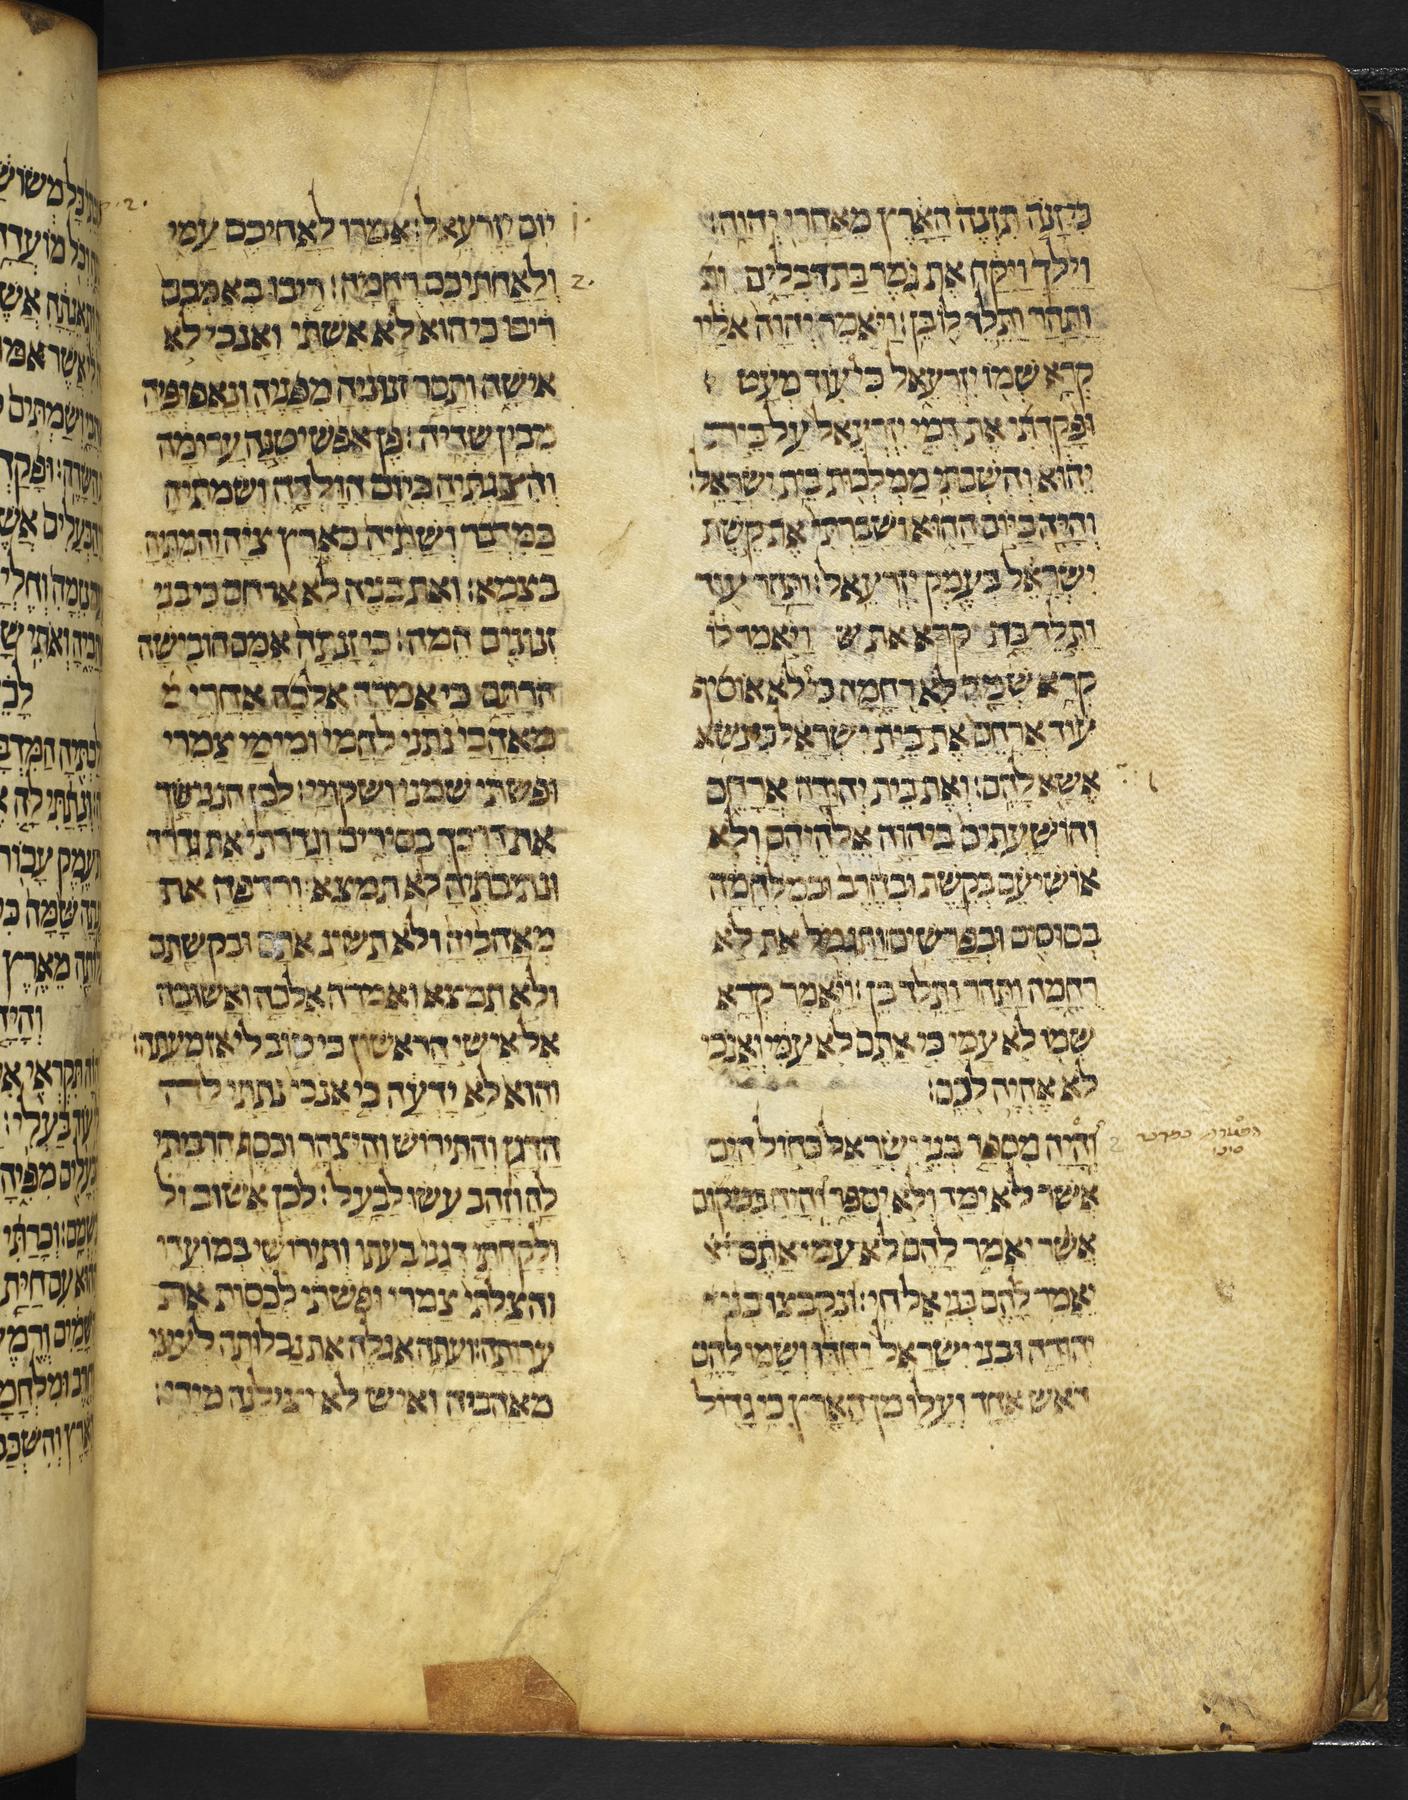 כי זנה תזנה הארץ מאחרי יהוה:
וילך ויקח את גמר בת דבלים
ותהר ותלד לו בן: ויאמר יהוה אליו
קרא שמו יזרעאל כי עוד מעט
ופקדתי את דמי יזרעאל על בית
יהוא והשבתי ממלכות בית ישראל:
והיה ביום ההוא ושברתי את קשת
ישראל בעמק יזרעאל: ותהר עוד
ותלד בת קרא את ש ויאמר לו
קרא שמה לא רחמה כי לא אוסיף
עוד ארחם את בית ישראל כי נשא
אשא להם: ואת בית יהודה ארחם
והושעתים ביהוה אלהיהם ולא
אושיעם בקשת ובחרב ובמלחמה
בסוסים ובפרשים: ותגמל את לא
רחמה ותהר ותלד בן: ויאמר קרא
שמו לא עמי כי אתם לא עמי ואנכי
לא אהיה לכם:
והיה מספר בני ישראל כחול הים
אשר לא ימד ולא יספר והיה במקום
אשר יאמר להם לא עמי אתם
יאמר להם בני אל חי: ונקבצו בני
יהודה ובני ישראל יחדו ושמו להם
ראש אחד ועלו מן הארץ כי גדול
יום יזרעאל: אמרו לאחיכם עמי
ולאחתיכם רחמה: ריבו באמכם
ריבו כי היא לא אשתי ואנכי לא
אישה ותסר זנוניה מפניה ונאפופיה
מבין שדיה: פן אפשיטנה ערומה
והצגתיה כיום הולדה ושמתיה
כמדבר ושתיה כארץ ציה והמתיה
בצמא: ואת בניה לא ארחם כי בני
זנונים המה: כי זנתה אמם הובישה
הרתם כי אמרה אלכה אחרי
מאהבי נתני לחמי ומימי צמרי
ופשתי שמני ושקויי: לכן הנני שך
את דרכך בסירים וגדרתי את גדרה
ונתיבתיה לא תמצא: ורדפה את
מאהביה ולא תשיג אתם ובקשתם
ולא תמצא ואמרה אלכה ואשובה
אל אישי הראשון כי טוב לי אז מעתה:
והוא לא ידעה כי אנכי נתתי לה
הדגן והתירוש והיצהר וכסף הרביתי
לה וזהב עשו לבעל: לכן אשוב
ולקחתי דגני בעתו ותירושי במועדו
והצלתי צמרי ופשתי לכסות את
ערותה: ועתה אגלה את נבלותה לעיני
מאהביה ואיש לא יצילנה מידי: